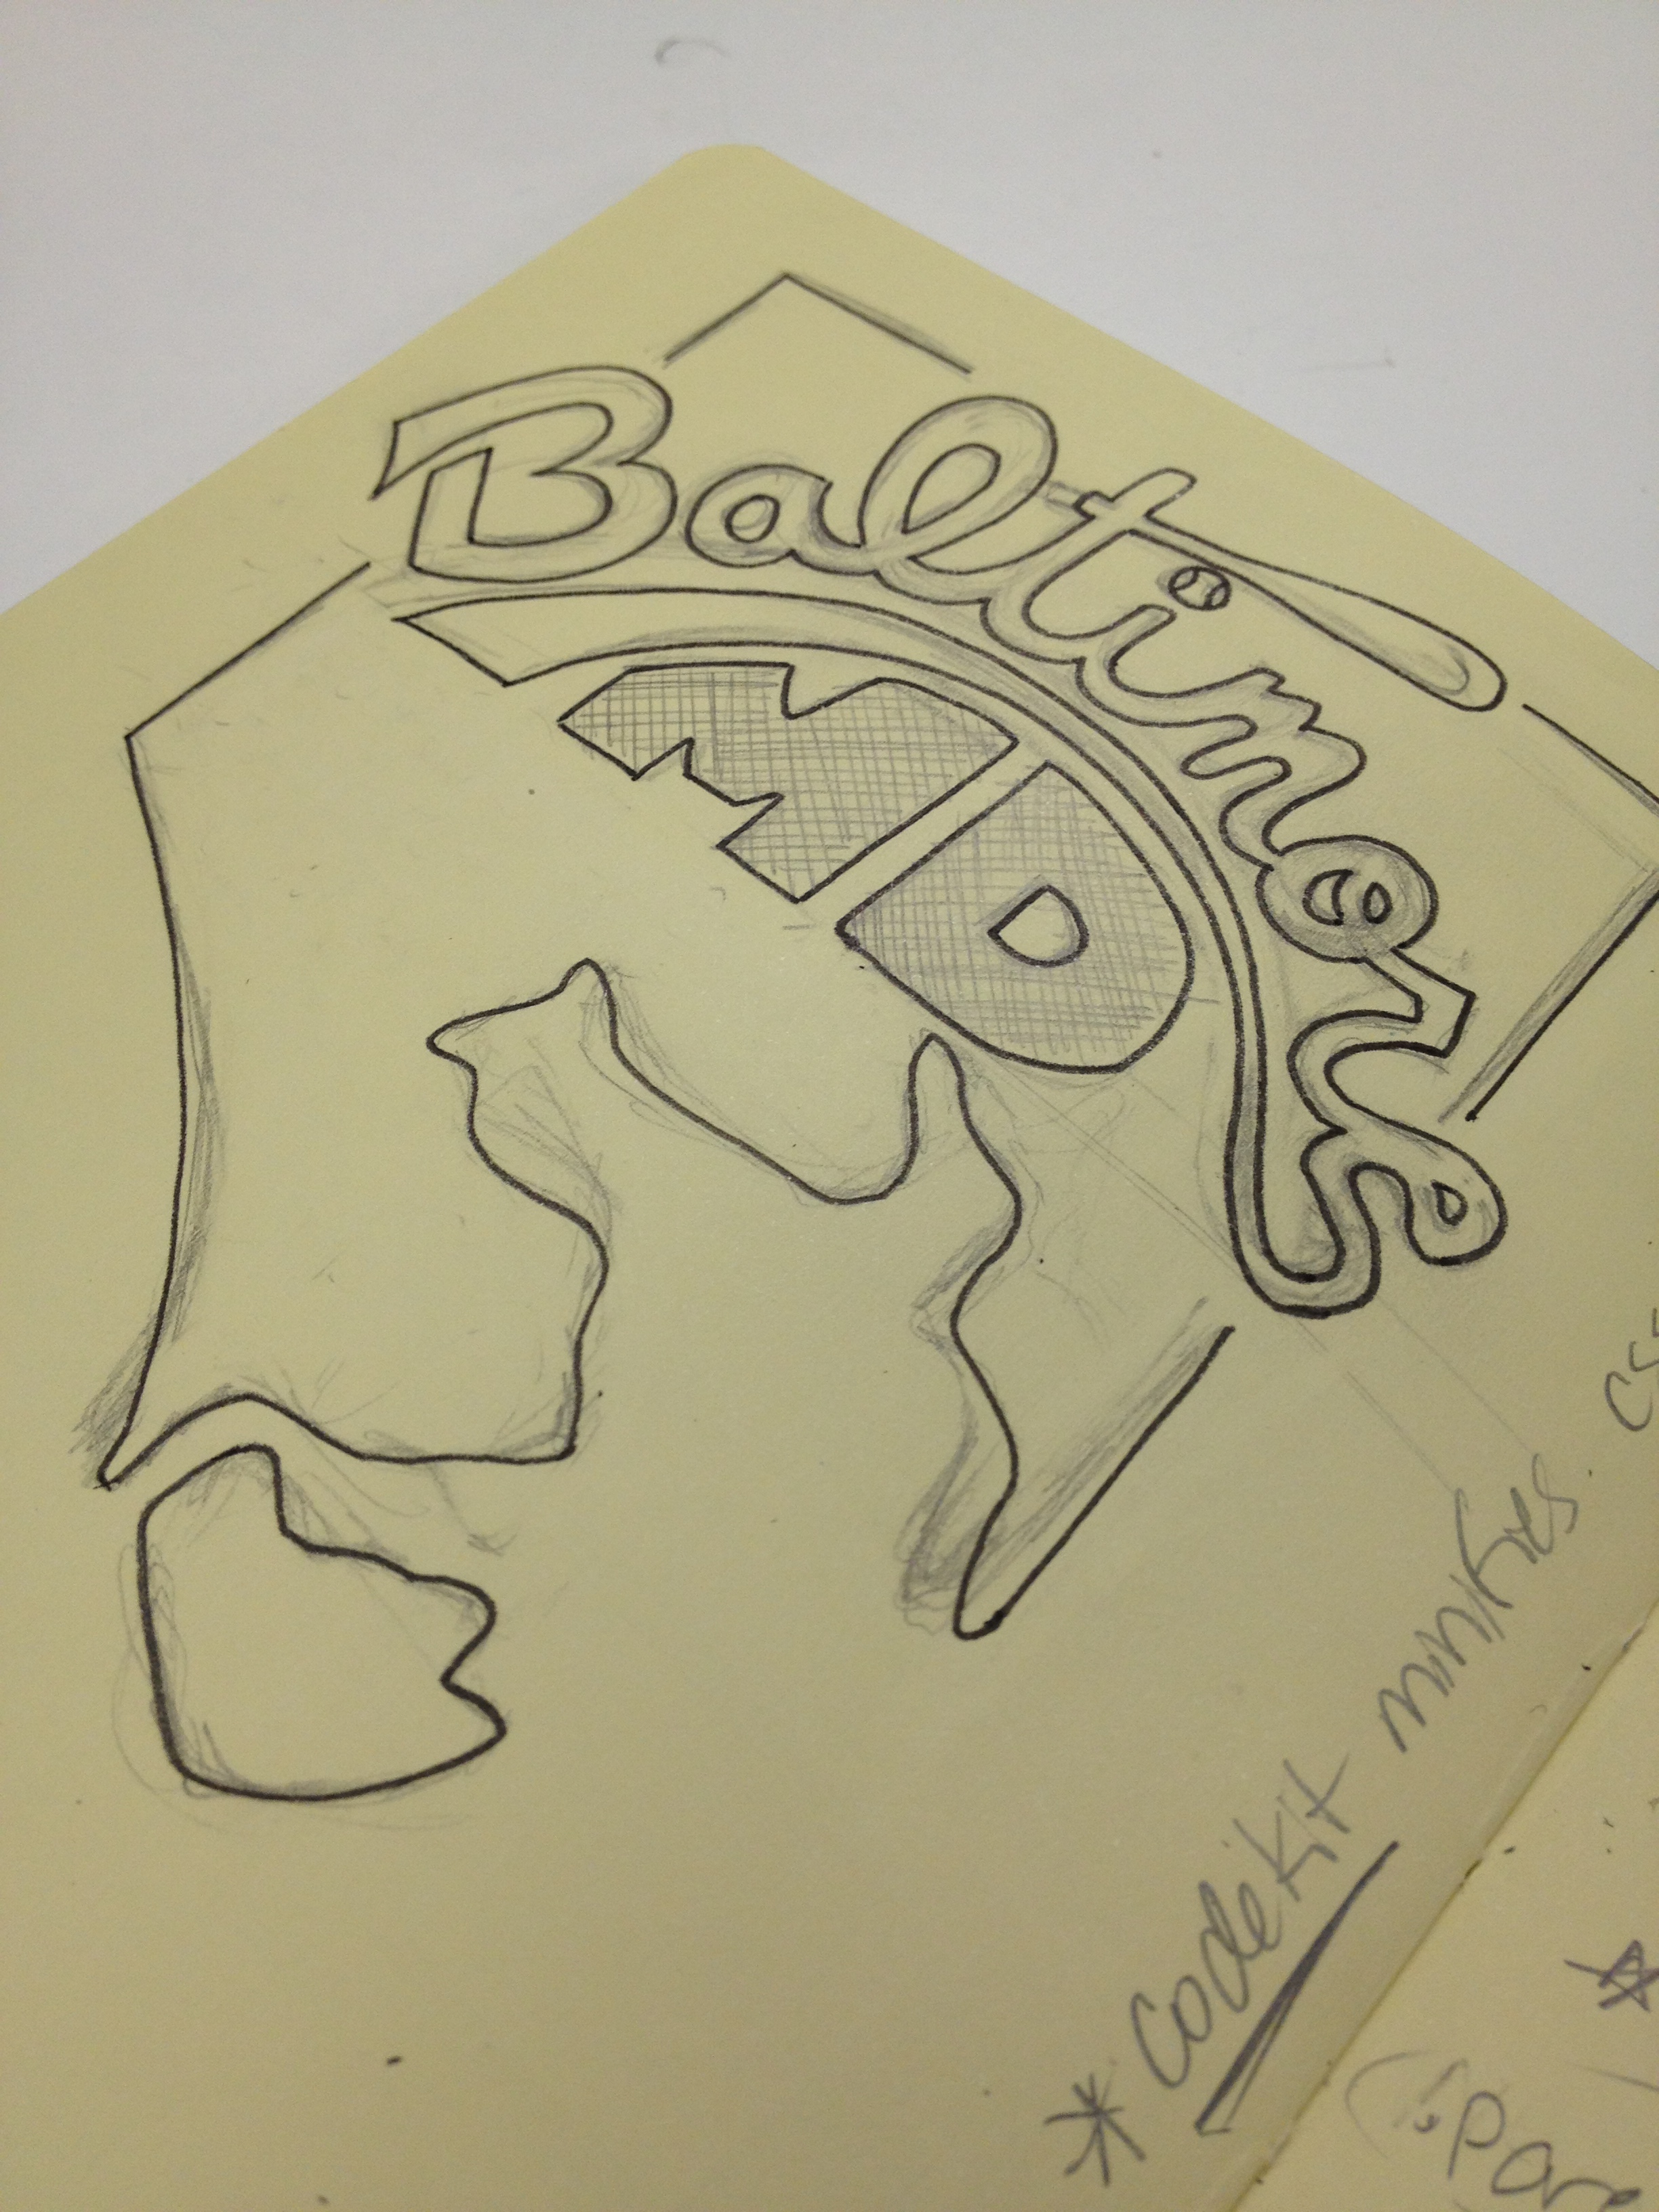 Baltimore
MD
* Codekit minifies css
*
(:para